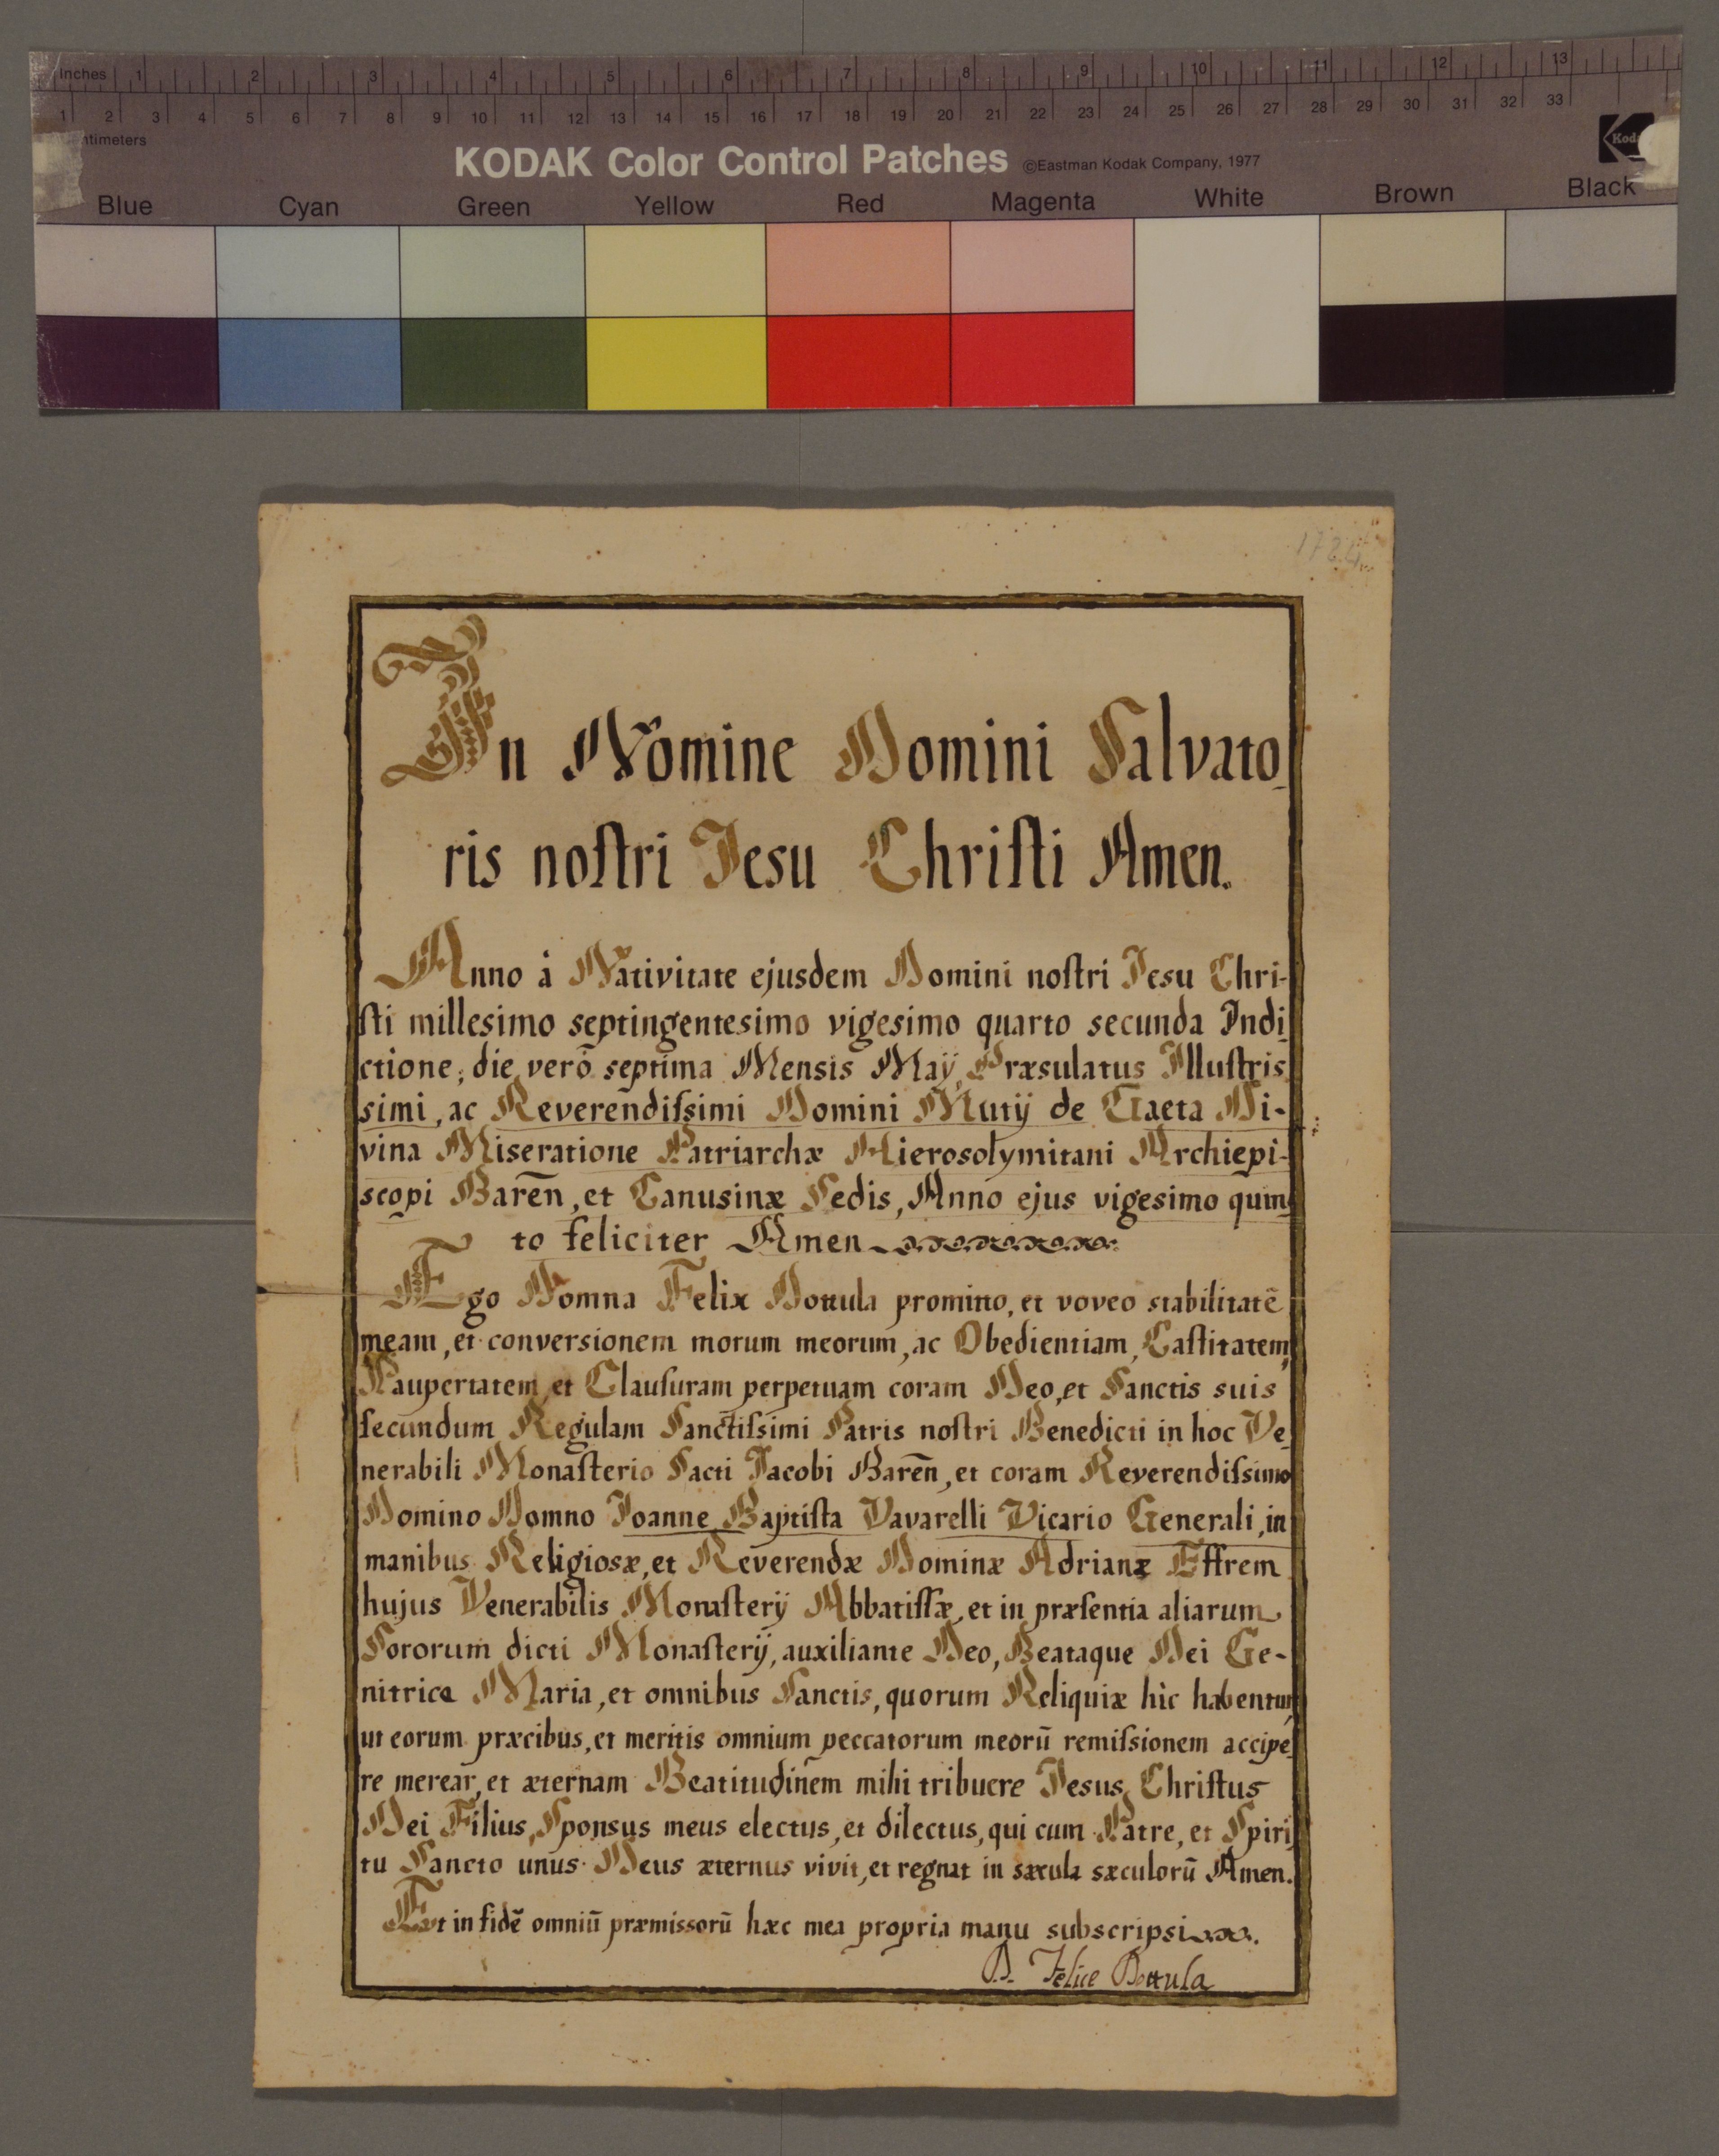 Inches 1 2 3 4 5 6 7 8 9 10 11 12 13
1 2 3 4 5 6 7 8 9 10 11 12 13 14 15 16 17 18 19 20 21 22 23 24 25 26 27 28 29 30 31 32 33
ntimeters
KODAK Color Control Patches ©Eastman Kodak Company, 1977
Kod
Blue Cyan Green Yellow Red Magenta White Brown Black
1724
In Nomine Domini Salvato
ris noſtri Jesu Chriſti Amen.
Anno à Nativitate ejusdem Domini noſtri Jesu Chri-
ſti millesimo septingentesimo vigesimo quarto secunda Indi
ctione; die verò septima Mensis Maÿ, Præsulatus Illuſtris
simi, ac Reverendiſsimi Domini Mutÿ de Gaeta Di-
vina Miseratione Patriarchæ Hierosolymitani Archiepi-
scopi Barēn, et Canusinæ Sedis, Anno ejus vigesimo quin
to feliciter Amen
Ego Domna Felix Dottula promitto, et voveo stabilitatē
meam, et conversionem morum meorum, ac Obedientiam, Caſtitatem,
Paupertatem, et Clauſuram perpetuam coram Deo, et Sanctis suis
ſecundum Regulam Sanctiſsimi Patris noſtri Benedicti in hoc Ve
nerabili Monaſterio Sacti Jacobi Barēn, et coram Reverendiſsimo
Domino Domno Joanne Baptiſta Vavarelli Vicario Generali, in
manibus Religiosæ, et Reverendæ Dominæ Adrianæ Effrem
hujus Venerabilis Monaſterÿ Abbatiſſæ, et in præſentia aliarum
Sororum dicti Monaſterÿ, auxiliante Deo, Beataque Dei Ge-
nitrice Maria, et omnibus Sanctis, quorum Reliquiæ hìc habentur,
ut eorum præcibus, et meritis omnium peccatorum meorū remiſsionem accipe
re merear, et æternam Beatitudinem mihi tribuere Jesus Chriſtus
Dei Filius, Sponsus meus electus, et dilectus, qui cum Patre, et Spiri
tu Sancto unus Deus æternus vivit, et regnat in sæcula sæculorū Amen.
Et in fidē omniū præmissorū hæc mea propria manu subscripsi
D. Felice Dottula